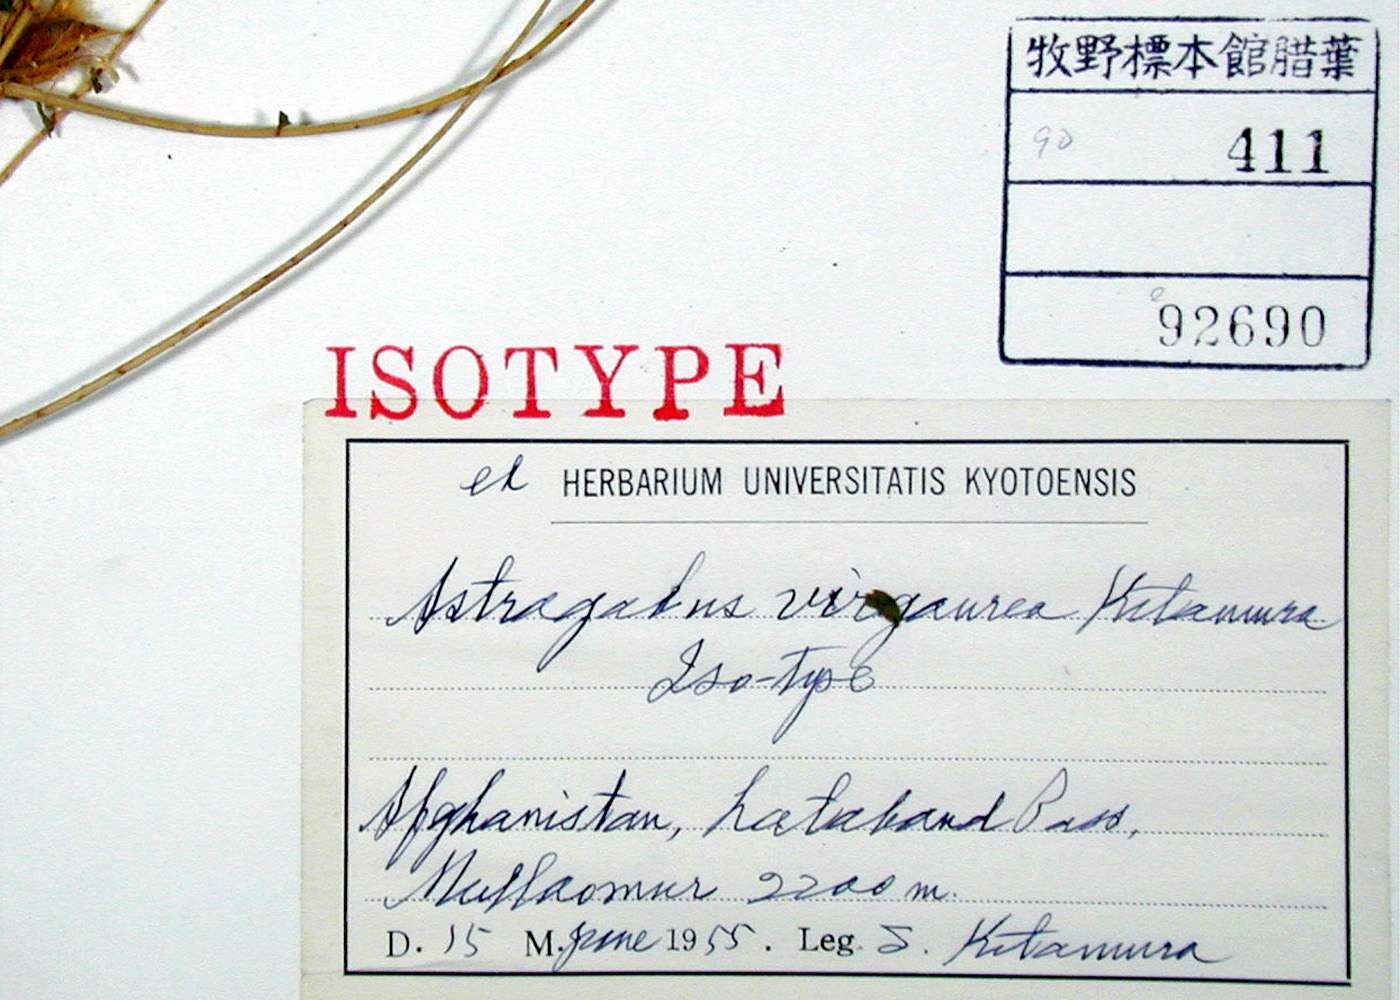 牧野標本館腊葉
90 411
92690
ISOTYPE
ex HERBARIUM UNIVERSITATIS KYOTOENSIS
Astragalus virgaurea Kitamura
Iso-type
Afghanistan, Lataband Pass,
Mullaomur 2200 m.
D. 15 M. June 1955. Leg. S. Kitamura